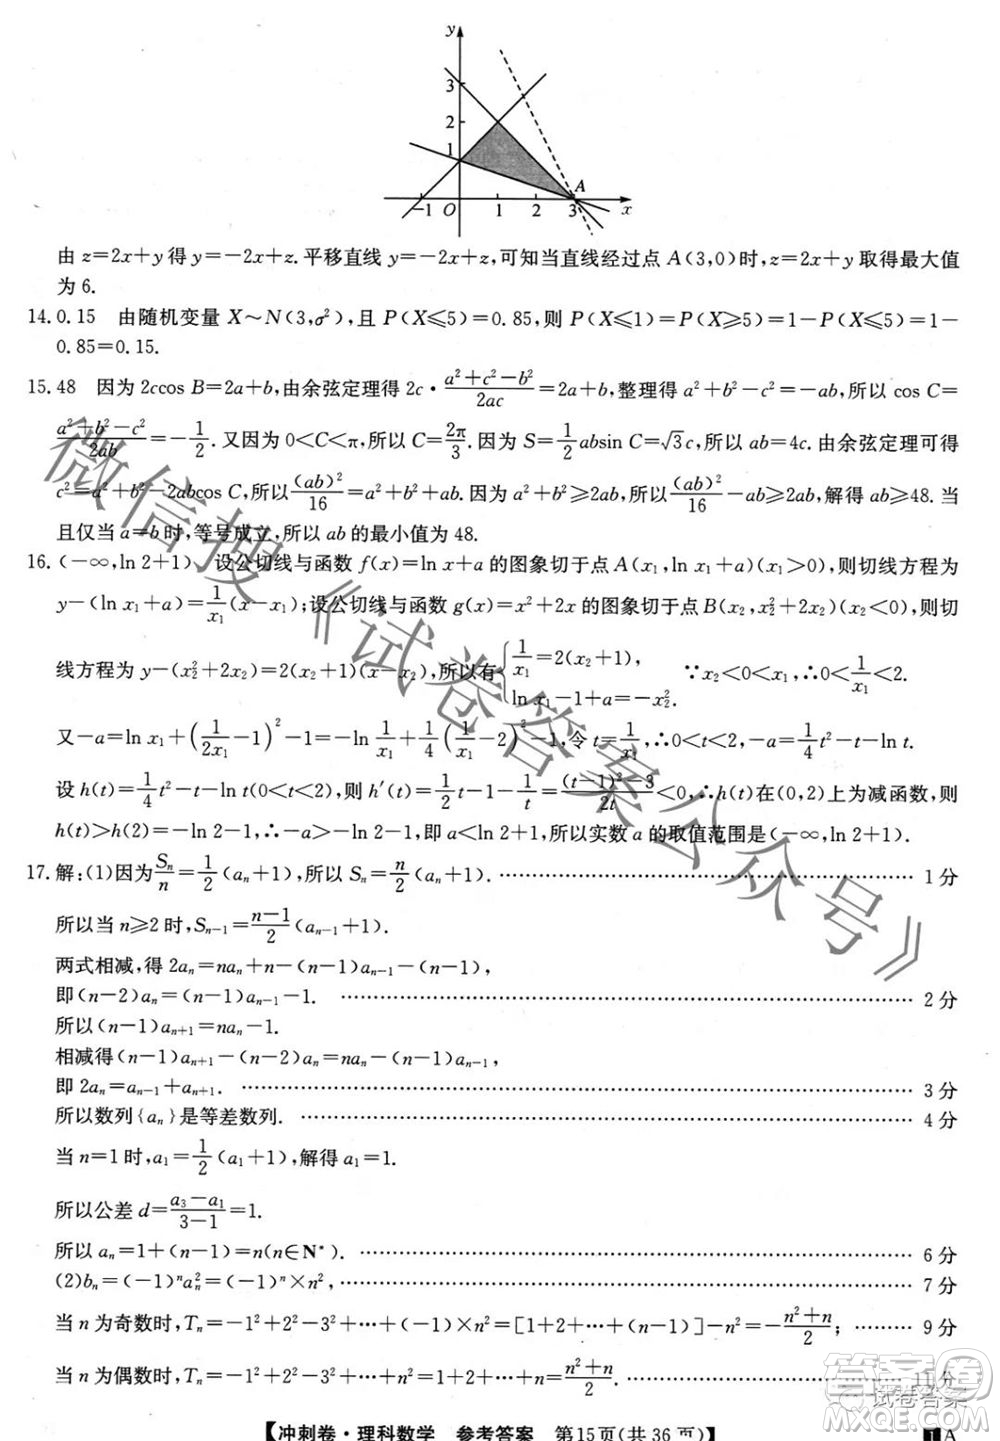 y
3
2
1
A
-1 O 1 2 3 x
由 z=2x+y 得 y=-2x+z.平移直线 y=-2x+z,可知当直线经过点 A(3,0)时,z=2x+y 取得最大值
为 6.
14.0.15 由随机变量 X~N(3,σ²),且 P(X≤5)=0.85,则 P(X≤1)=P(X≥5)=1-P(X≤5)=1-
0.85=0.15.
15.48 因为 2ccos B=2a+b,由余弦定理得 2c·(a²+c²-b²)/(2ac)=2a+b,整理得 a²+b²-c²=-ab,所以 cos C=
(a²+b²-c²)/(2ab)=-1/2.又因为 0<C<π,所以 C=2π/3.又因为 S=1/2 absin C=√3c,所以 ab=4c.由余弦定理可得
c²=a²+b²-2abcos C,所以(ab)²/16=a²+b²+ab.又因为 a²+b²≥2ab,所以(ab)²/16-ab≥2ab,解得 ab≥48.当
且仅当 a=b 时,等号成立,所以 ab 的最小值为 48.
16.(-∞,ln 2+1) 设公切线与函数 f(x)=ln x+a 的图象切于点 A(x₁,ln x₁+a)(x₁>0),则切线方程为
y-(ln x₁+a)=1/x₁(x-x₁);设公切线与函数 g(x)=x²+2x 的图象切于点 B(x₂,x₂²+2x₂)(x₂<0),则切
线方程为 y-(x₂²+2x₂)=2(x₂+1)(x-x₂),所以有{1/x₁=2(x₂+1), ln x₁-1+a=-x₂². ∵x₂<0<x₁,∴0<1/x₁<2.
又-a=ln x₁+(1/(2x₁)-1)²-1=-ln 1/x₁+1/4(1/x₁-2)²-1,令 t=1/x₁,∴0<t<2,-a=1/4 t²-t-ln t.
设 h(t)=1/4 t²-t-ln t(0<t<2),则 h′(t)=1/2 t-1-1/t=((t-1)²-3)/(2t)<0,∴h(t)在(0,2)上为减函数,则
h(t)>h(2)=-ln 2-1,∴-a>-ln 2-1,即 a<ln 2+1,所以实数 a 的取值范围是(-∞,ln 2+1).
17.解:(1)因为Sₙ/n=1/2(aₙ+1),所以 Sₙ=n/2(aₙ+1).……1 分
所以当 n≥2 时,Sₙ₋₁=(n-1)/2(aₙ₋₁+1).
两式相减,得 2aₙ=naₙ+n-(n-1)aₙ₋₁-(n-1),
即(n-2)aₙ=(n-1)aₙ₋₁-1.……2 分
所以(n-1)aₙ₊₁=naₙ-1.
相减得(n-1)aₙ₊₁-(n-2)aₙ=naₙ-(n-1)aₙ₋₁,
即 2aₙ=aₙ₋₁+aₙ₊₁.……3 分
所以数列{aₙ}是等差数列.……4 分
当 n=1 时,a₁=1/2(a₁+1),解得 a₁=1.
所以公差 d=(a₃-a₁)/(3-1)=1.
所以 aₙ=1+(n-1)=n(n∈N*).……6 分
(2)bₙ=(-1)ⁿaₙ²=(-1)ⁿ×n²,……7 分
当 n 为奇数时,Tₙ=-1²+2²-3²+…+(-1)×n²=[1+2+…+(n-1)]-n²=-(n²+n)/2;……9 分
当 n 为偶数时,Tₙ=-1²+2²-3²+…+n²=1+2+…+n=(n²+n)/2.……11 分
【冲刺卷·理科数学 参考答案 第15页(共36页)】 1 A
微信搜《试卷答案公众号》
答案圈
试卷答案
MXQE.COM